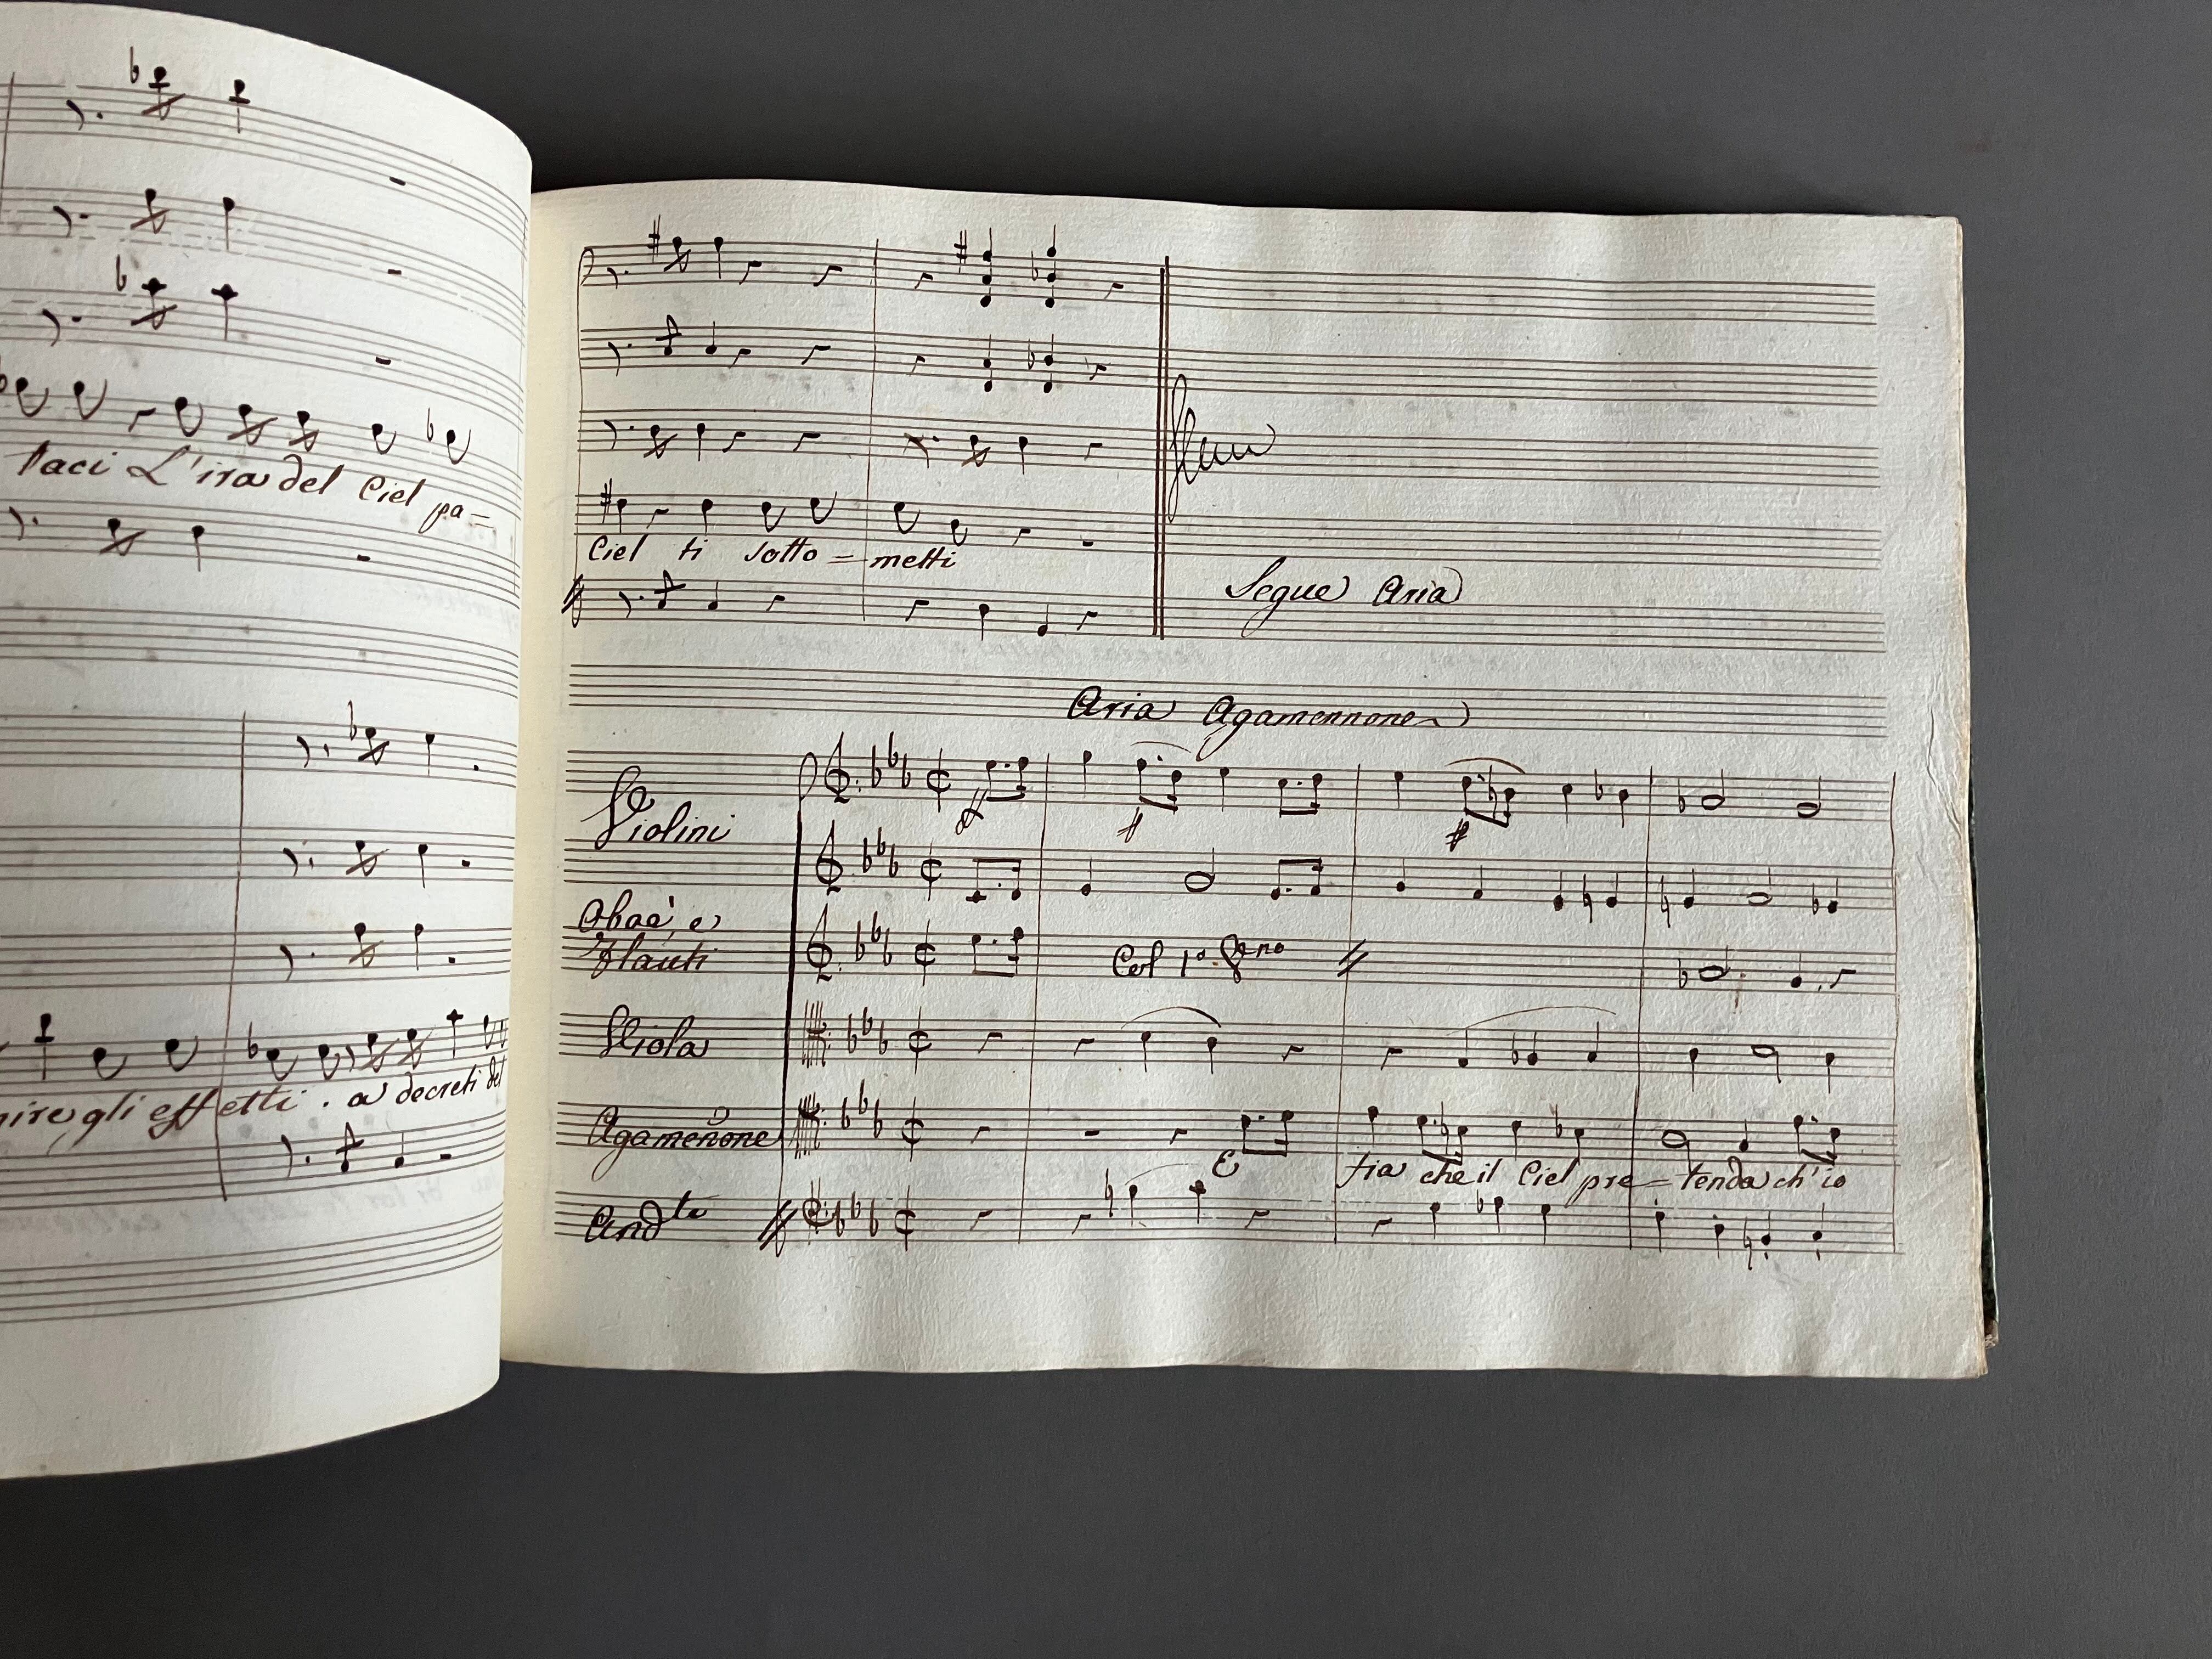 taci L'ira del Ciel pa=
gli effetti. a decreti del
Ciel ti sotto=metti
Segue Aria
Aria Agamennone
Violini
Oboè, e
Flauti
Col 1º
Viola
Agameñone
E fia che il Ciel pre=tenda ch'io
Andte